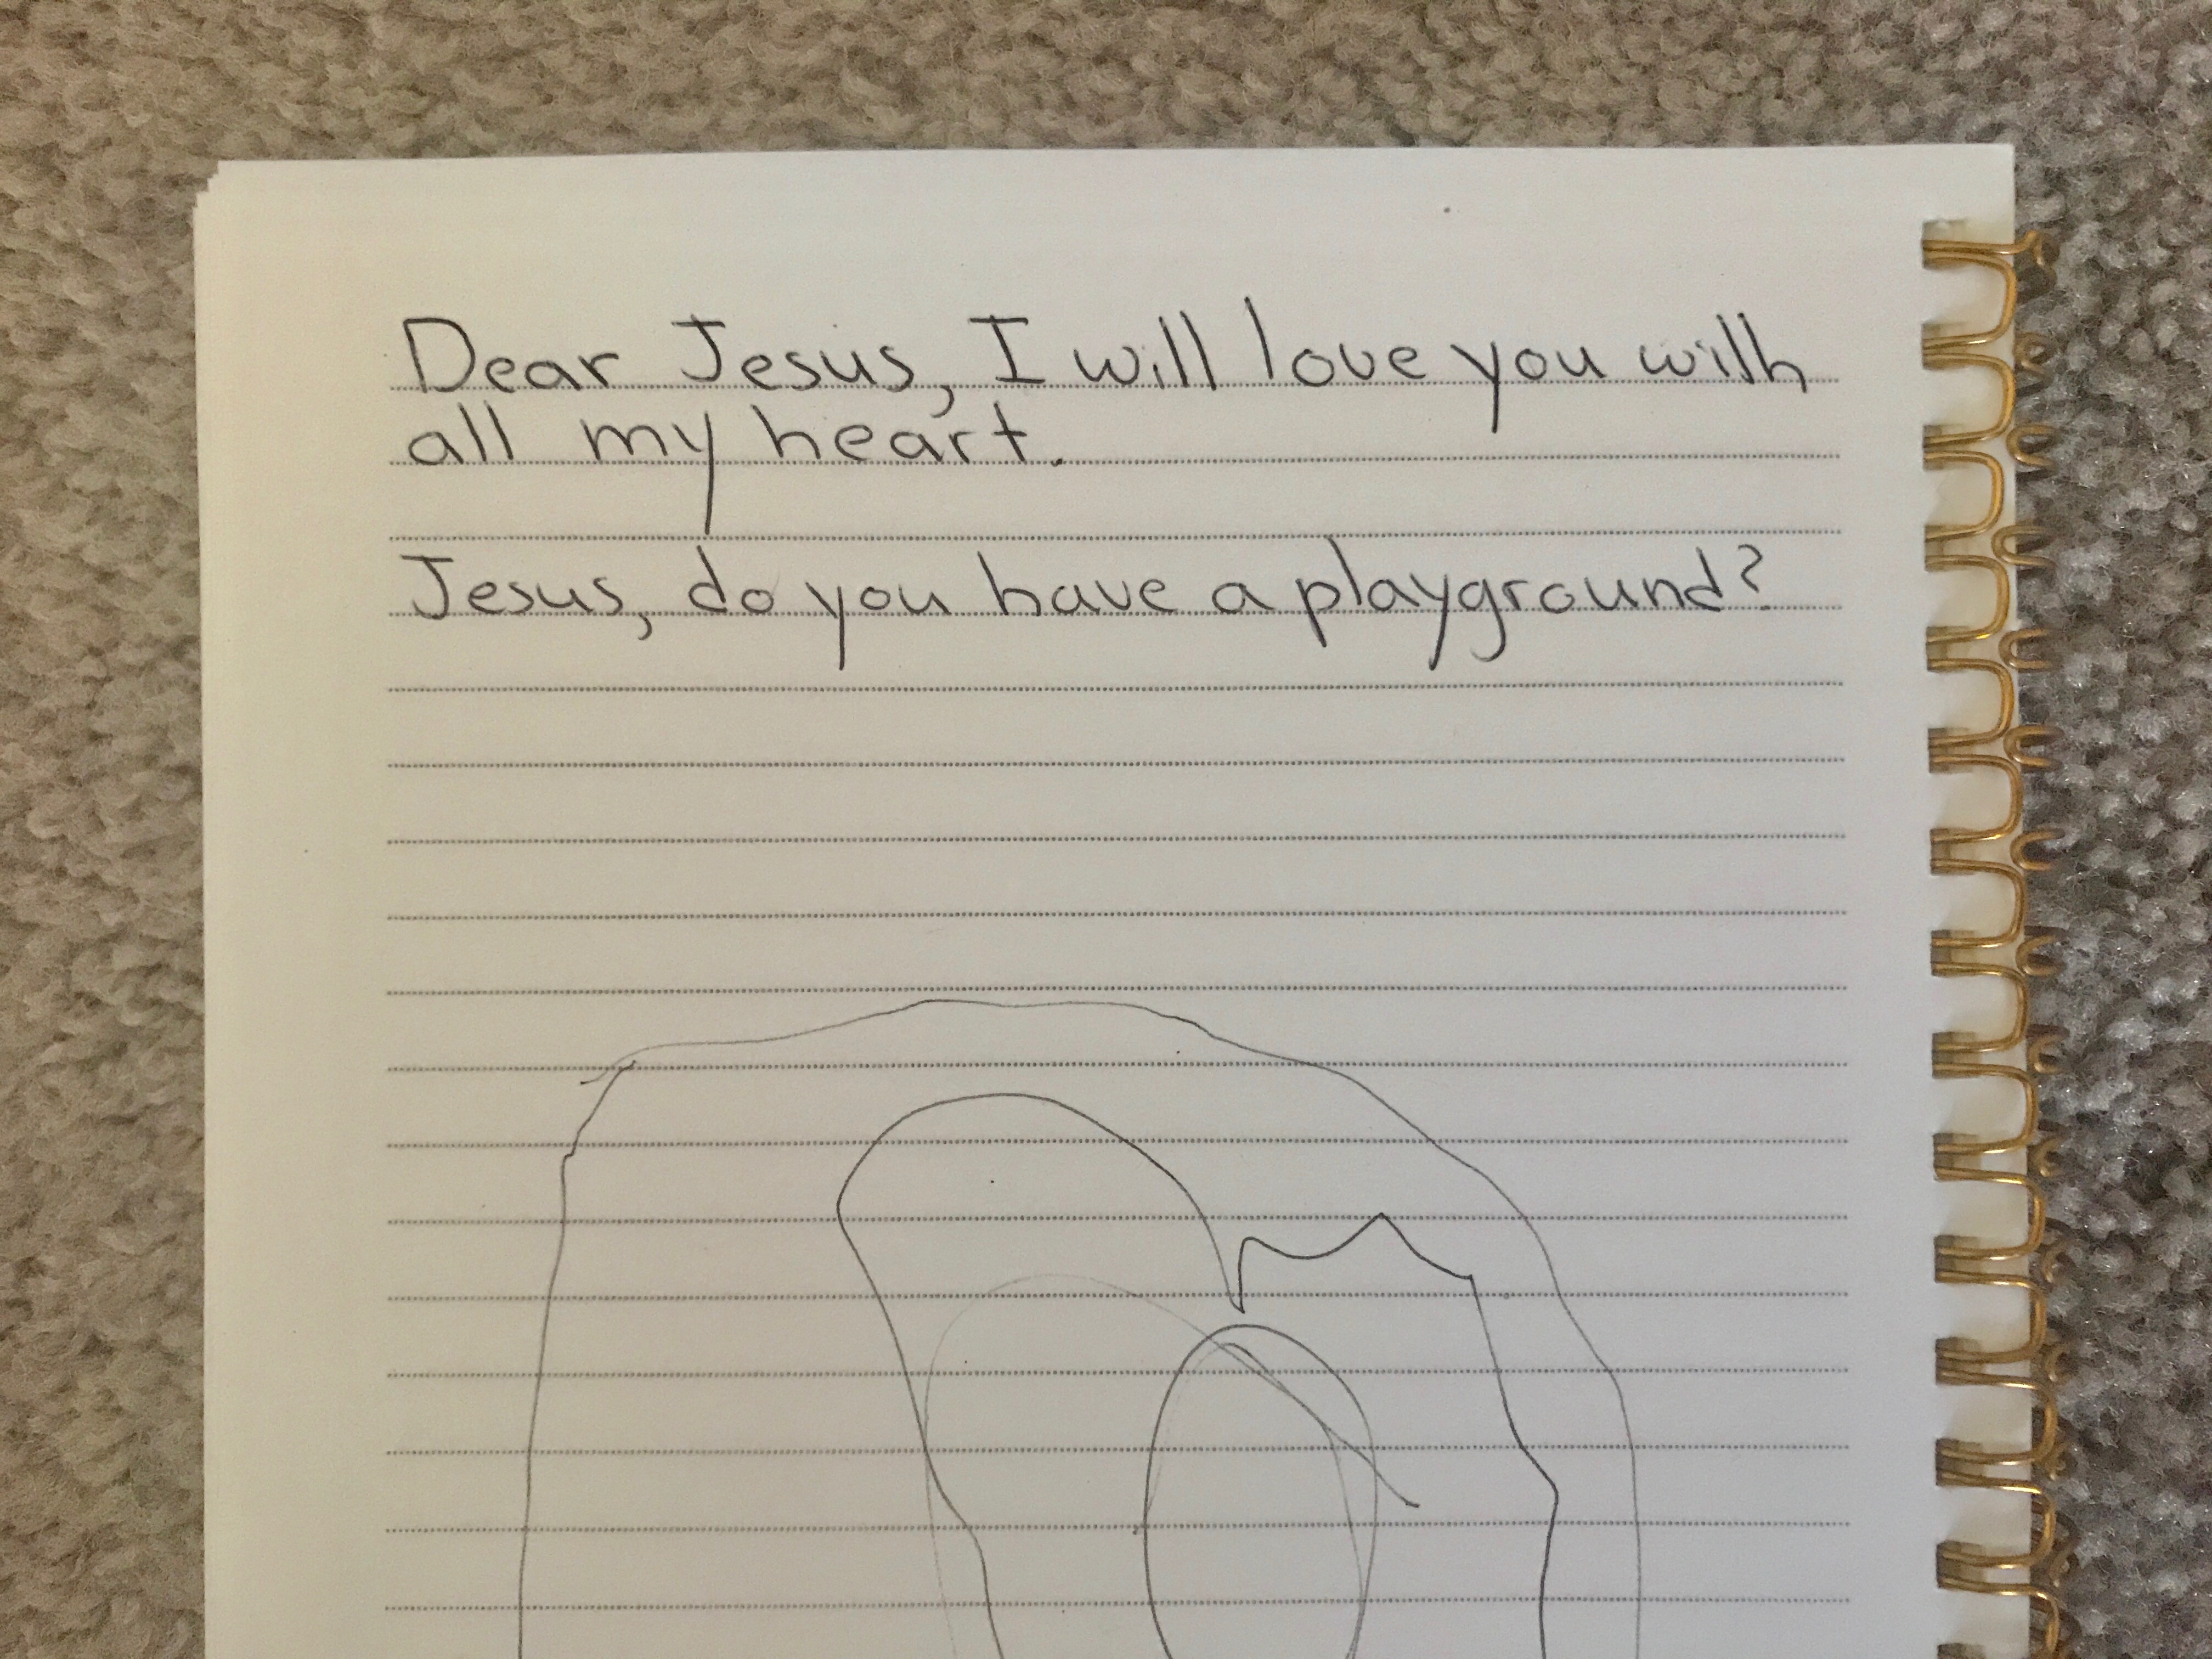 Dear Jesus, I will love you with
all my heart.
Jesus, do you have a playground?